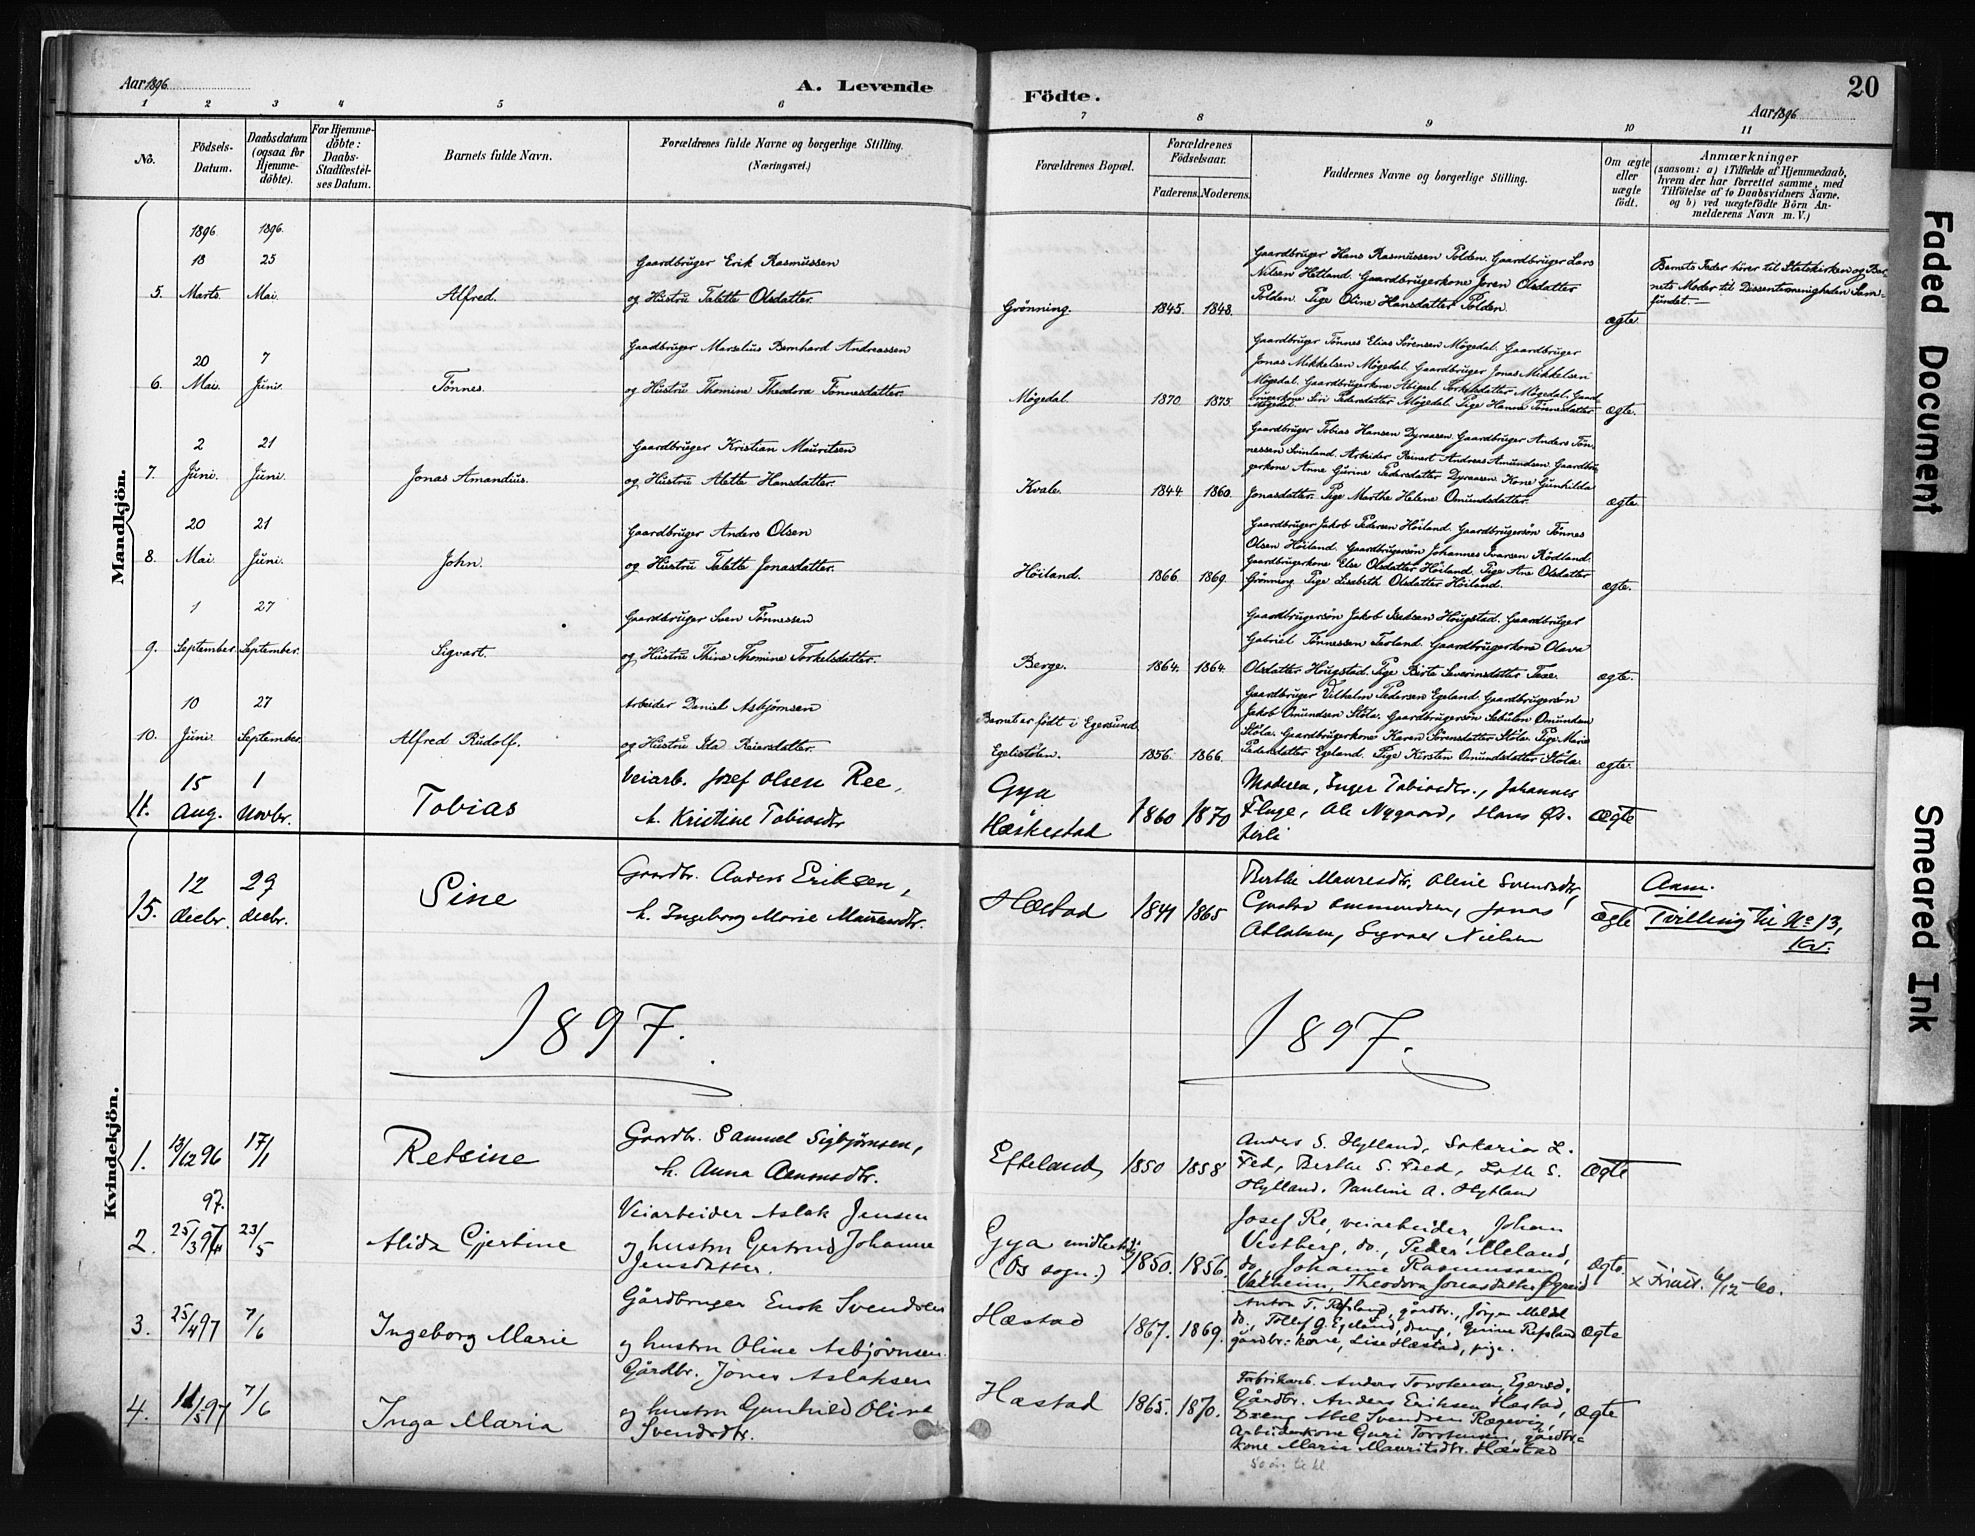 Aar 1896
A. Levende
Födte.
20
Aar 1896
1 2 3 4 5 6 7 8 9 10 11
No.
Födsels-Datum.
Daabsdatum (ogsaa for Hjemme-döbte).
For Hjemme-döbte: Daabs-Stadfæstel-ses Datum.
Barnets fulde Navn.
Forældrenes fulde Navne og borgerlige Stilling.
(Næringsvei.)
Forældrenes Bopæl.
Forældrenes Födselsaar.
Faderens. Moderens.
Faddernes Navne og borgerlige Stilling.
Om ægte eller uægte födt.
Anmærkninger
(saasom: a) i Tilfælde af Hjemmedaab,
hvem der har forrettet samme, med
Tilföielse af to Daabsvidners Navne,
og b) ved uægtefödte Börn An-
melderens Navn m. V.)
Mandkjön.
1896 1896.
5. 18 Marts. 25 Mai. Alfred. Gaardbruger Erik Rasmussen
og Hustru Talette Olsdatter. Grönning. 1845. 1848.
Gaardbruger Hans Rasmussen Polden. Gaardbruger Lars
Nilsen Hetland. Gaardbrugerkone Joren Olsdatter
Polden. Pige Oline Hansdatter Polden. ægte.
Barnets Fader hörer til Statskirken og Bar-
nets Moder til Dissentermenigheden Sam-
fundet.
6. 20 Mai. 7 Juni. Tönnes. Gaardbruger Marselius Bernhard Andreassen
og Hustru Thomine Theodora Tönnesdatter. Mögedal. 1870 1875.
Gaardbruger Tönnes Elias Sörensen Mögedal. Gaardbruger
Jonas Mikkelsen Mögedal. Gaardbruger Jonas Mikkelsen
Mögedal. Gaardbrugerkone Abigael Torkelsdatter Mögedal. Gaard
brugerkone Siri Pedersdatter Mögedal. Pige Hanne Tönnesdatter
Mögedal. ægte.
7. 2 Juni. 21 Juni. Jonas Amandius. Gaardbruger Kristian Mauritsen
og Hustru Alette Hansdatter. Kvale. 1844. 1860.
Gaardbruger Tobias Hansen Dyraasen. Gaardbruger Anders Tön-
nessen Svinland. Arbeider Reinert Andreas Amundsen. Gaardbru
gerkone Anne Gurine Pedersdatter Dyraasen. Kone Gunhilda
Jonasdatter. Pige Marthe Helene Omundsdatter. ægte.
8. 20 Mai. 21 Juni. John. Gaardbruger Anders Olsen
og Hustru Talette Jonasdatter. Höiland. 1866. 1869.
Gaardbruger Jakob Pedersen Höiland. Gaardbrugersön Tönnes
Olsen Höiland. Gaardbrugersön Johannes Ivarsen Rödland.
Gaardbrugerkone Else Olsdatter Höiland. Pige Ane Olsdatter
Grönning. Pige Lisabeth Olsdatter Höiland. ægte.
9. 1 September. 27 September. Sigvart. Gaardbruger Sven Tönnessen
og Hustru Thine Thomine Torkelsdatter. Berge. 1864. 1864.
Gaardbrugersön Jakob Hougstad. Gaardbruger
Gabriel Tönnessen Terland. Gaardbrugerkone Olava
Olsdatter Hougstad. Pige Birte Severinsdatter ægte.
10. 10 Juni. 27 September. Alfred Rudolf. Arbeider Daniel Asbjörnsen
og Hustru Ida Reiersdatter. Barnet er födt i Egersund.
Egelistölen. 1856. 1866.
Gaardbruger Vilhelm Pedersen Egeland. Gaardbrugersön
Jakob Omundsen Stöla. Gaardbrugersön Sebulon Omundsen
Stöla. Gaardbrugerkone Karen Sörensdatter Stöla. Pige Marie
Pedersdatter Egeland. Pige Kirsten Omundsdatter Stöla. ægte.
11. 15 Aug. 1 Novbr. Tobias Veiarb. Josef Olsen Ree,
h. Kristine Tobiasdtr Gya
Hæskestad 1860 1870
Madsea, Inger Tobiasdtr., Johannes
Fluge, Ole Nygaard, Hans Øs-
terli ægte
15. 12 decbr. 29 decbr. Sine Gaardbr. Anders Eriksen,
h. Ingeborg Marie Mauresdtr. Hæstad 1841 1865
Berthe Mauresdtr, Oline Svendsdtr,
Gustav Ommundsen, Jonas
Aslaksen, Nielsen ægte
Anm.
Tvilling til No 13,
Kv.
1897. 1897.
Kvindekjön.
1. 13/12 96 17/1 Retsine Gaardbr. Samuel Sigbjørnsen,
h. Anna Aanonsdtr. Efteland 1850 1858
Anders S. Hylland, Sakarias L.
Fed, Berthe S. Fed, Lotte S.
Hylland, Pauline A. Hylland ægte
97.
2. 25/3 97 23/5 Alida Gjertine Veiarbeider Aslak Jensen
og hustru Gertrud Johanne
Jensdatter. Gya midlertidig
(Os sogn.) 1850. 1856.
Josef Re, veiarbeider, Johan
Vestberg, do., Peder Meland,
do, Johanne Rasmussen
Vatheim, Theodora Jonasdatter ægte.
3. 25/4 97 7/6 Ingeborg Marie Gårdbruger Enok Svendsen
og hustru Oline Asbjörnsen Hæstad 1867. 1869.
Anton T. Refsland, gårdbr., Jörgen
do., Tollef G. Egeland, dreng, Gurine Refsland
gårdbr. kone, Lise Hæstad, pige. ægte
4. 11/5 97 7/6 Inga Maria Gårdbr. Jonas Aslaksen
og hustru Gunhild Oline
Svendsdtr. Hæstad 1865. 1870.
Fabrikarb. Anders Torstensen, Egersd.
Gårdbr. Anders Eriksen Hæstad,
Dreng Abel Svendsen Rægevig,
Arbeiderkone Guri Torstensen, gårdbr.
kone Maria Mauritsdtr. Hæstad ægte
Faded Document
Smeared Ink